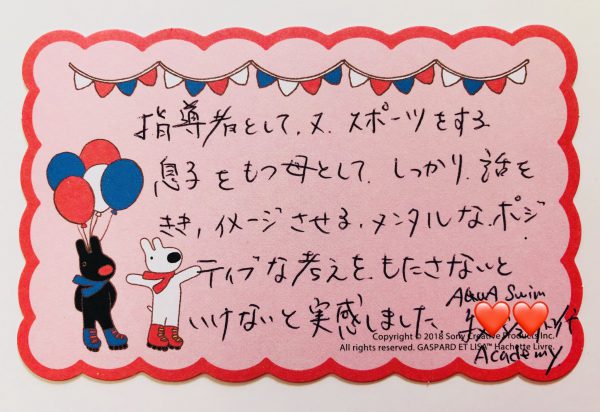 指導者として、又、スポーツをする
息子をもつ母として、しっかり、話を
きき、イメージさせる、メンタルな、ポジ
ティブな考えを、もたさないと
いけないと実感しました。
AQUA Swim
Academy
Copyright © 2018 Sony Creative Products Inc.
All rights reserved. GASPARD ET LISA™ Hachette Livre.